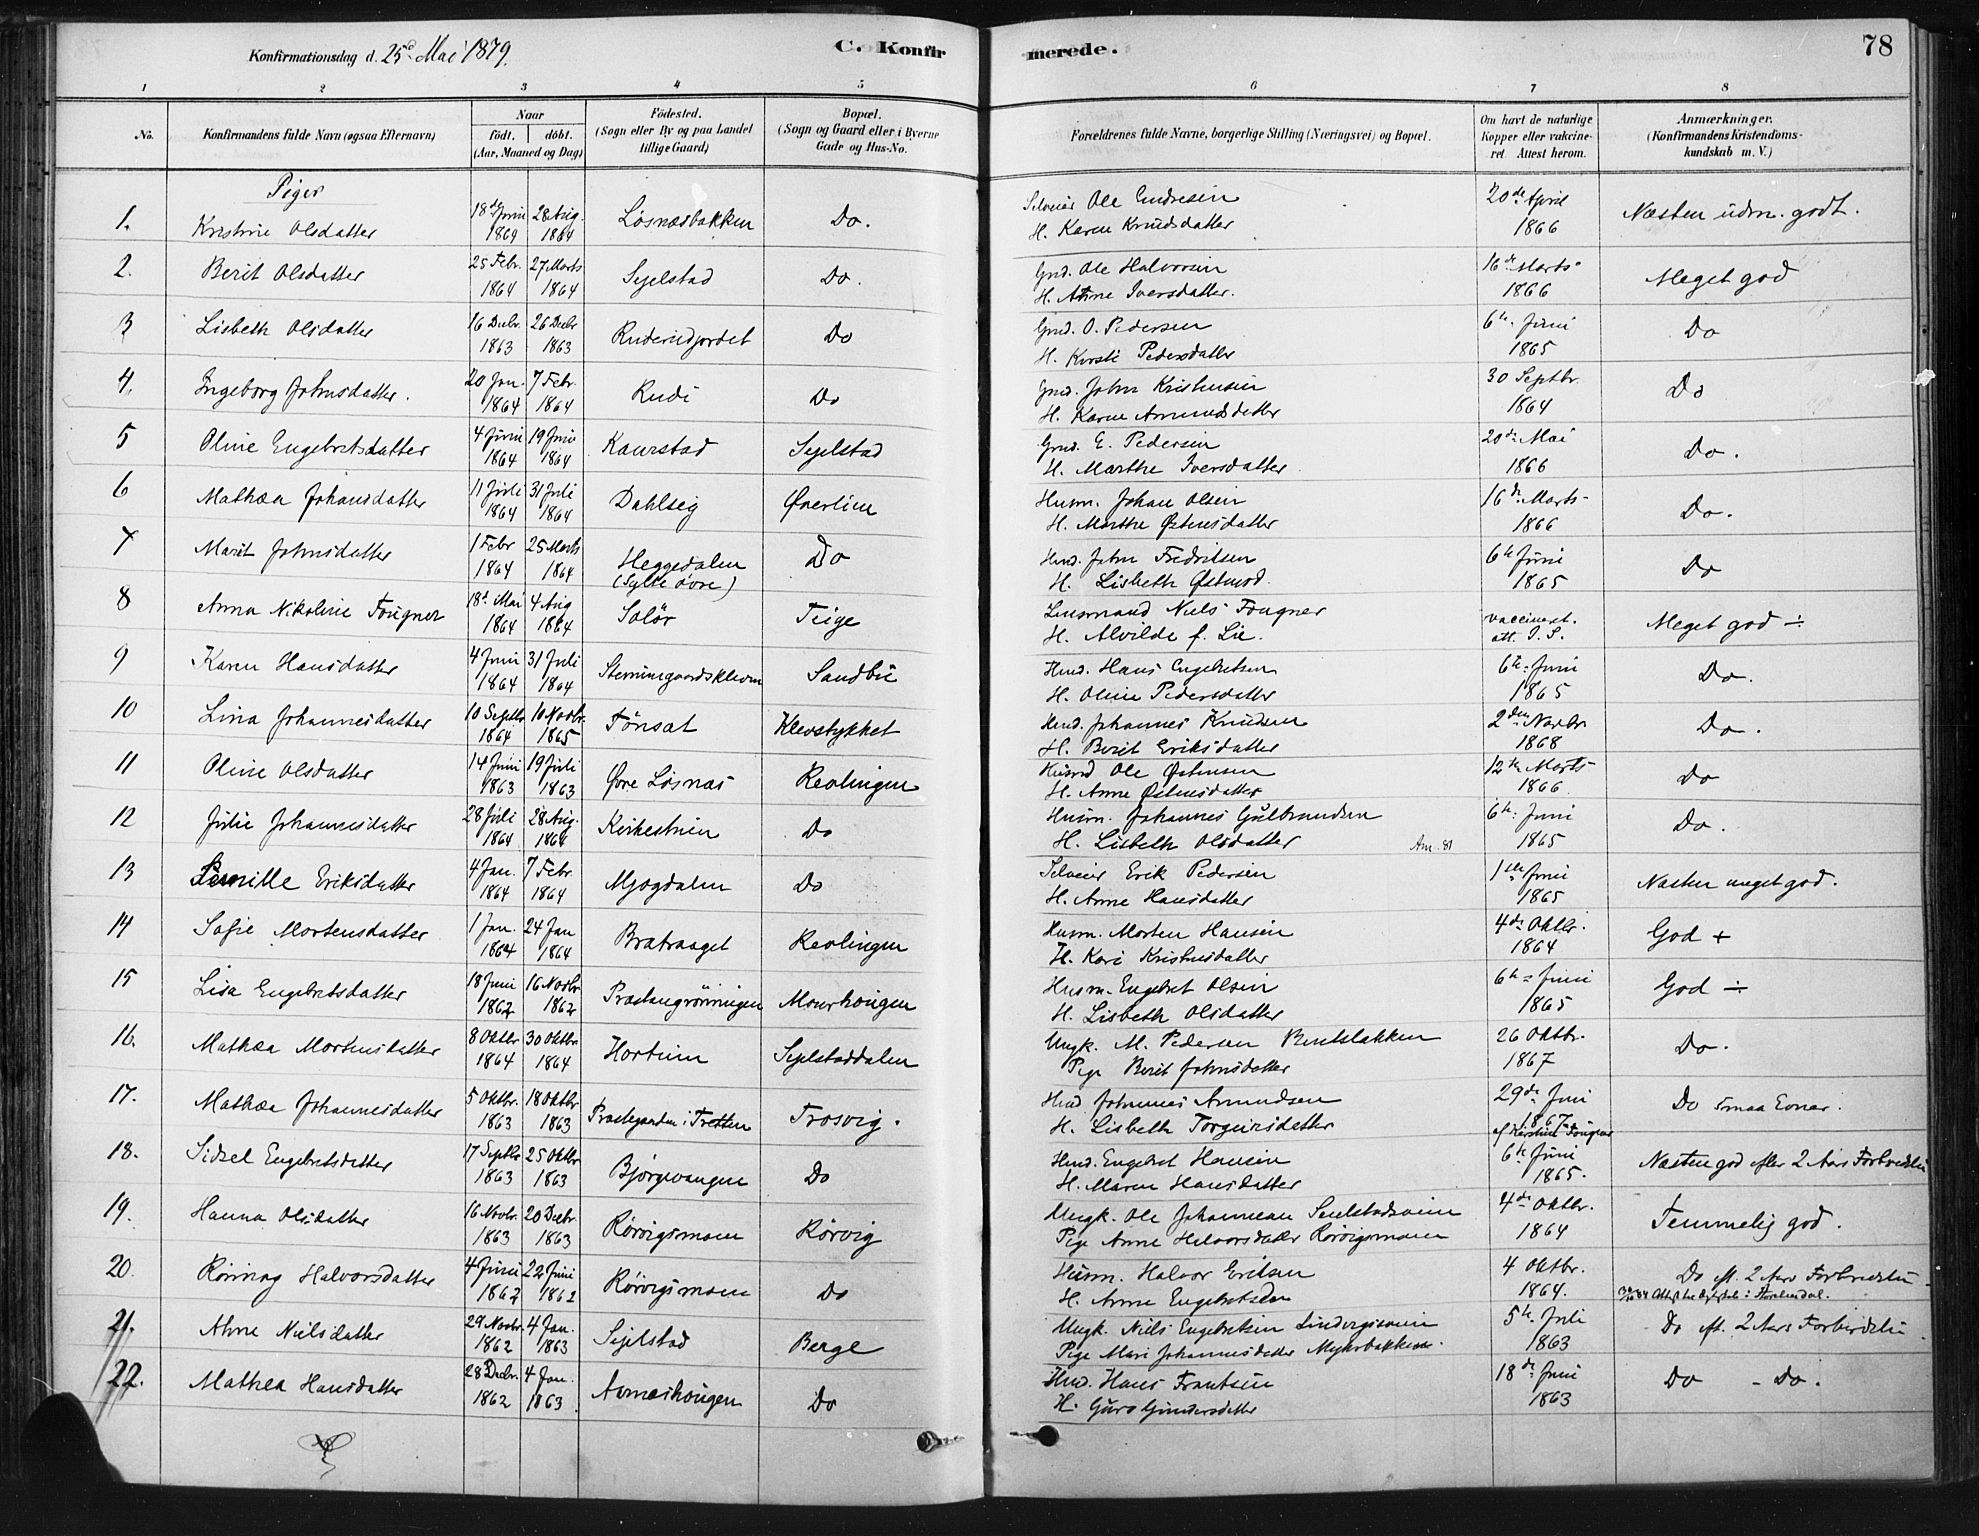 Konfirmationsdag d. 25de Mai 1879.
C. Konfirmerede.
78
1 2 3 4 5 6 7 8
No. Konfirmandens fulde Navn (ogsaa Efternavn) Naar født. døbt. (Aar, Maaned og Dag) Fødested. (Sogn eller By og paa Landet tillige Gaard) Bopæl. (Sogn og Gaard eller i Byerne Gade og Hus-No. Forældrenes fulde Navne, borgerlige Stilling (Næringsvei) og Bopæl. Om havt de naturlige Kopper eller vakcineret Attest herom. Anmærkninger. (Konfirmandens Kristendomskundskab m. V.)
Piger
1. Kristine Olsdatter 18de Juni 1864 28 Aug. 1864 Løsnæsbakken Do. Selveier Ole Endresen H. Karen Knudsdatter 20de April 1866 Næsten udm. godt.
2. Berit Olsdatter 25 Febr. 1864 27 Marts 1864 Sejelstad Do. Grd. Ole Halvorsen H. Anne Iversdatter. 16de Marts 1866 Meget god
3 Lisbeth Olsdatter 16 Decbr. 1863 26 Decbr 1863 Do Grd. O. Pedersen H. Kirsti Pedersdatter 6te Juni 1865 Do
4. Ingeborg Johnsdatter. 20 Jan. 1864 7 Febr. 1864 Rudi Do Grd. John Kristensen H. Karen Amundsdatter 30 Septbr. 1864 Do
5 Oline Engebretsdatter 4 Juni 1864 19 Juni 1864 Kaurstad Sejelstad Grd. E. Pedersen H. Marthe Iversdatter 20de Mai 1866 Do.
6 Mathea Johansdatter 11 Juli 1864 31 Juli 1864 Dahlseg Øverlien Husm. Johan Olsen H. Marthe Østensdatter 16de Marts 1866 Do.
7 Marit Johnsdatter 1 Febr 1864 25 Marts 1864 Heggedalen (Sylte øvre) Do Hmd. John Fredriksen H. Lisbeth Østensd. 6te Juni 1865 Do
8 Anna Nikoline Fougner 18de Mai 1864 4 Aug 1864 Solør Teige Lensmand Niels Fougner H. Alvilde f. Lie. vaccineret. att. I. S. Meget god ÷
9 Karen Hansdatter 4 Juni 1864 31 Juli 1864 Steningaardskleven Sandbu Hmd. Hans Engebretsen H. Oline Pedersdatter 6te Juni 1865 Do.
10 Lina Johannesdatter 10 Septbr 1864 10 Novbr. 1865 Tønsæt Klevstykket Hmd. Johannes Knudsen H. Berit Eriksdatter 2den Novbr. 1868 Do.
11 Oline Olsdatter 14 Juni 1863 19 Juli 1863 Øvre Løsnæs Revlingen Husmd Ole Østensen H. Anne Østensdatter 12te Marts 1866. Do
12 Julie Johannesdatter 28 Juli 1864 28 Aug. 1864 Kirkestuen Do Husm. Johannes Gulbrandsen H. Lisbeth Olsdatter Am. 81 6te Juni 1865 Do.
13 Pernille Eriksdatter 4 Jan. 1864 7 Febr. 1864 Mjøgdalen Do Selveier Erik Pedersen H. Anne Hansdatter 1ste Juni 1865 Næsten meget god.
14 Sofie Mortensdatter 1 Jan. 1864 24 Jan 1864 Bratvaaget Revlingen Husm. Morten Hansen H. Kari Kristensdatter 4de Oktbr. 1864 God +
15 Lisa Engebretsdatter 18 Juni 1862 16 Novbr 1862 Præstengrønningen Maurhougen Husm. Engebret Olsen H. Lisbeth Olsdatter 6te Juni 1865 God ÷
16. Mathea Mortensdatter 8 Oktbr 1864 30 Oktbr. 1864 Hortuen Sejelstaddalen Ungk. M. Pedersen Benteløkken Pige Berit Johnsdatter 26 Oktbr. 1867 Do.
17. Mathea Johannesdatter 5 Oktbr. 1863 18 Oktbr 1863 Præstegaarden i Tretten Trosvig. Hmd Johannes Amundsen H. Lisbeth Torgeirsdatter 29de Juni 1867 af Kirstine Fougner Do smaa Evner.
18. Sidsel Engebretsdatter 17 Septbr 1863 25 Oktbr 1863 Bjørgevangen Do Hmd. Engebret Hansen H. Maren Hansdatter 6te Juni 1865. Næsten god efter 2 Aars Forberedelse
19. Hanna Olsdatter 16 Novbr. 1863 20 Decbr. 1863 Rørvigsmoen Rørvig Ungk. Ole Johannesen Pige Anne Halvorsdatter Rørvigsmoen 4de Oktbr. 1864 Temmelig god.
20. Rønnag Halvorsdatter 4 Juni 1862 22 Juni 1862 Rørvigsmoen Do Husm. Halvor Eriksen H. Anne Engebretsdtr 4 Oktbr. 1864. Do eft. 2 Aars Forberedelse
21. Anne Nielsdatter 29 Novbr. 1862 4 Jan. 1863 Sejelstad Berge Ungk. Niels Engebretsen Pige Mari Johannesdatter Myhrbakken 5te Juli 1863 Do eft. 2 Aars Forberedelse
22. Mathea Hansdatter 28 Decbr. 1862 4 Jan. 1863 Aameshougen Do Hmd. Hans Frantsen H. Guro Gundersdatter 18de Juni 1863 Do - Do.